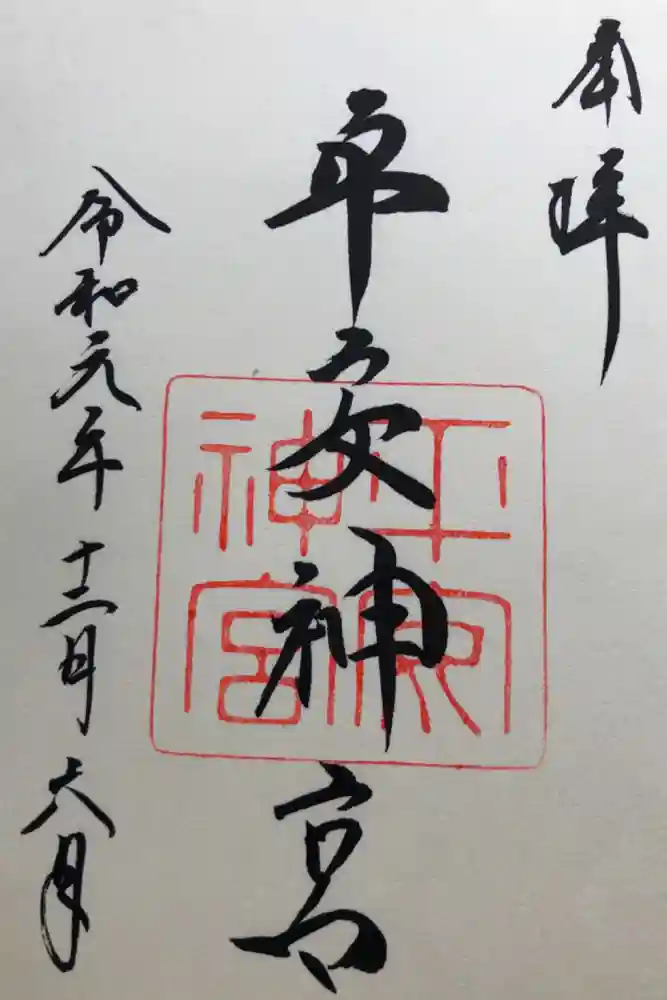 奉拝
平安神宮
平安神宮
令和元年十二月六日